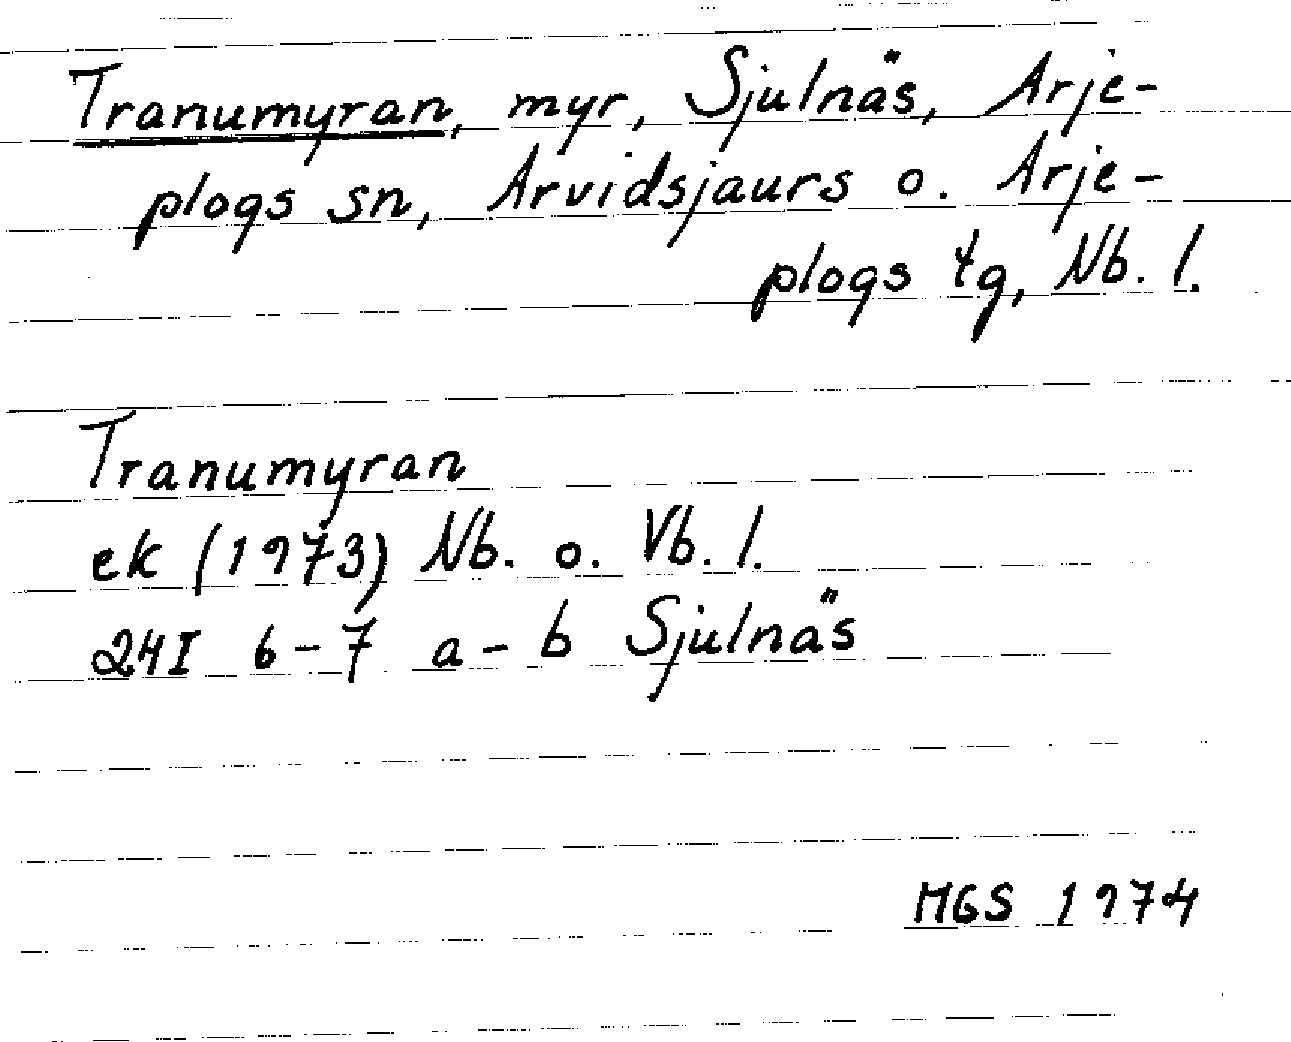 Tranumyran, myr, Sjulnäs, Arje-
plogs sn, Arvidsjaurs o. Arje-
plogs tg, Nb. l.
Tranumyran
ek (1973) Nb. o. Vb. l.
24I 6-7 a-b Sjulnäs
MGS 1974